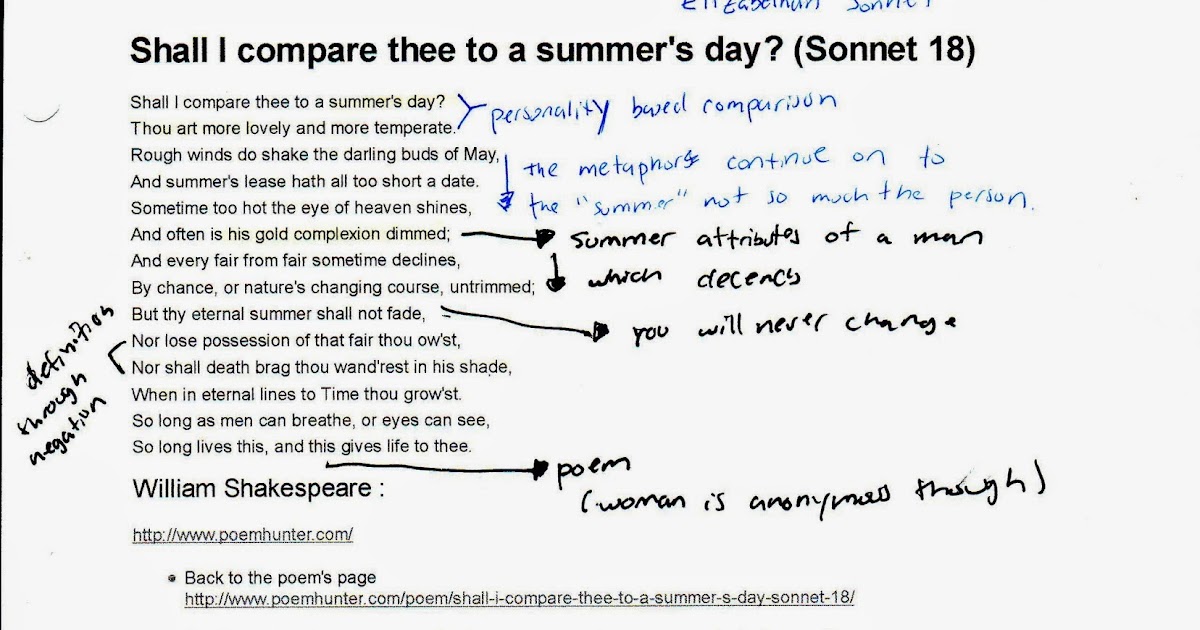 Elizabethan Sonnet
Shall I compare thee to a summer's day? (Sonnet 18)
Shall I compare thee to a summer's day?
Thou art more lovely and more temperate.
personality based comparison
Rough winds do shake the darling buds of May,
And summer's lease hath all too short a date.
the metaphors continue on to
Sometime too hot the eye of heaven shines,
the "summer" not so much the person.
And often is his gold complexion dimmed;
summer attributes of a man
And every fair from fair sometime declines,
By chance, or nature's changing course, untrimmed;
which decends
But thy eternal summer shall not fade,
you will never change
Nor lose possession of that fair thou ow'st,
Nor shall death brag thou wand'rest in his shade,
definition
through
negation
When in eternal lines to Time thou grow'st.
So long as men can breathe, or eyes can see,
So long lives this, and this gives life to thee.
poem
(woman is anonymous though)
William Shakespeare :
http://www.poemhunter.com/
• Back to the poem's page
http://www.poemhunter.com/poem/shall-i-compare-thee-to-a-summer-s-day-sonnet-18/